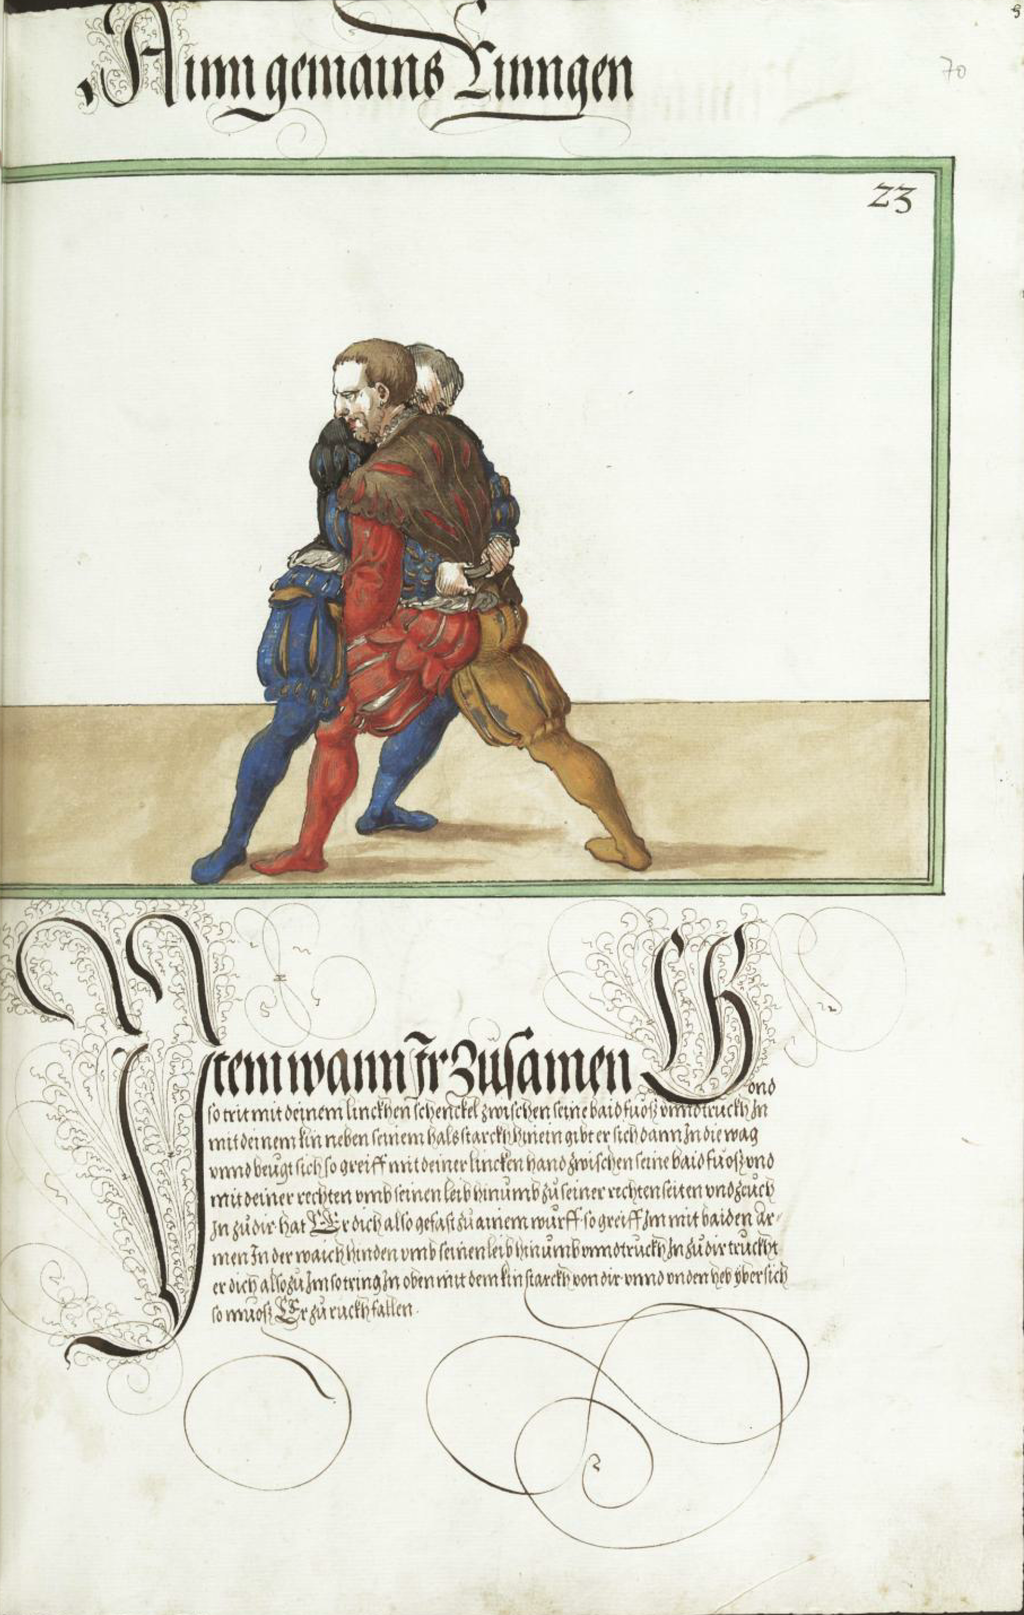 Ainn gemains Ringen
70
23
Item wann Ir zusamen Gond
so trit mit deinem linckhen schenckel zwischen seine baid fuosz vnnd truckh In
mit deinem kin neben seinem hals starckh hinein gibt er sich dann In die wag
vnnd beugt sich so greiff mit deiner lincken hand zwischen seine baid fuosz vnd
mit deiner rechten vmb seinen leib hinumb zu seiner rechten seiten vnd zeuch
In zu dir hat Er dich also gefast zu ainem wurff so greiff Im mit baiden Ar-
men In der waich hinden vmb seinen leib hinumb vnnd truckh In zu dir truckht
er dich also zu Im so tring In oben mit dem kin starckh von dir vnnd vnden heb ybersich
so muosz Er zu ruckh fallen.